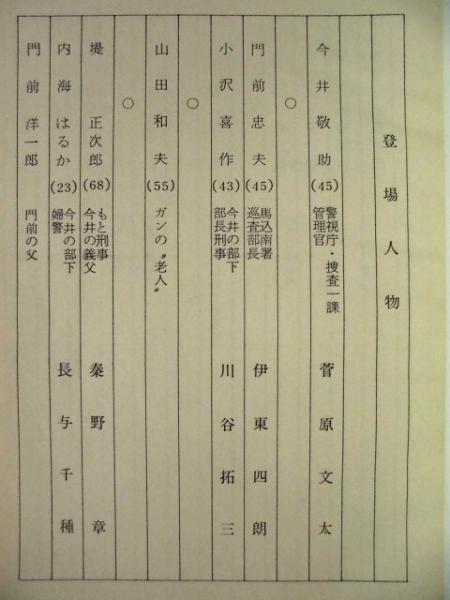 登場人物
今井敬助(45) 警視庁・捜査一課管理官 菅原文太
○
門前忠夫(45) 馬込南署巡査部長 伊東四朗
小沢喜作(43) 今井の部下部長刑事 川谷拓三
○
山田和夫(55) ガンの〝老人〟
○
堤正次郎(68) もと刑事今井の義父 秦野章
内海はるか(23) 今井の部下婦警 長与千種
門前洋一郎 門前の父